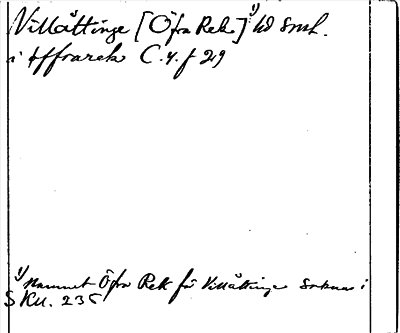 Villåttinge [Öfra Rek.]¹⁾ hd Smh.
i öffrarek C.4. f 29
¹⁾ Namnet Öfra Rek för Villåttinge saknas i
SRU. 235